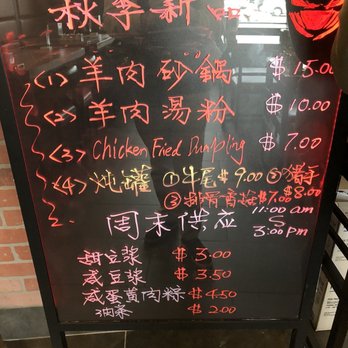 秋季新品
<1> 羊肉砂鍋 $15.00
<2> 羊肉湯粉 $10.00
<3> Chicken Fried Dumpling $7.00
<4> 炖罐 ①牛尾 $9.00 ②猪手 $8.00
③ $7.00
周末供应 11:00 am
3:00 pm
甜豆浆 $3.00
咸豆浆 $3.50
咸蛋黄肉粽 $4.50
油条 $2.00